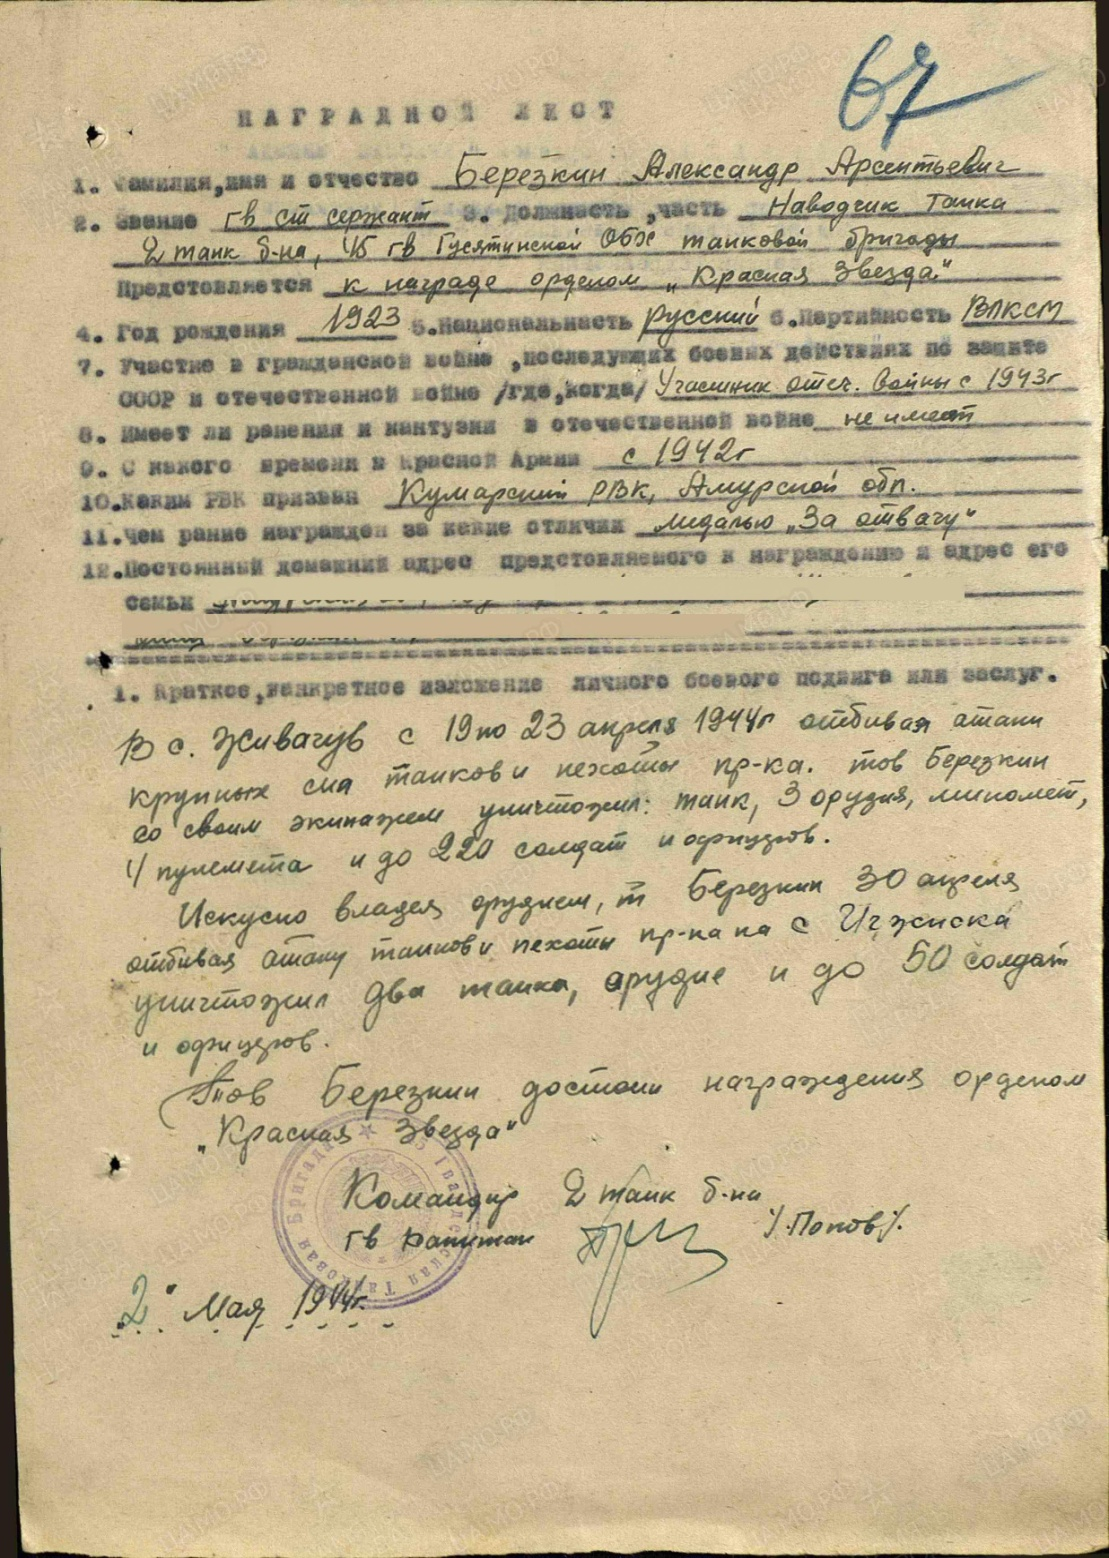 67
НАГРАДНОЙ ЛИСТ
1. Фамилия,имя и отчество Березкин Александр Арсентьевич
2. Звание гв ст сержант 3. Должность ,часть Наводчик танка
2 танк б-на, 45 гв Гусятинской ОБХ танковой бригады
Предстовляется к награде орденом „Красная Звезда"
4. Год рождения 1923 5.Национальность русский 6.Партийность ВЛКСМ
7. Участие в гражданской войне ,последующих боевых действиях по защите
СССР и отечественной войне /где,когда/ Участник отеч. войны с 1943г
8. Имеет ли ранения и контузии в отечественной войне не имеет
9. С какого времени в Красной Армии с 1942г
10.Каким РВК призван Кумарский РВК, Амурской обл.
11.Чем ранне награжден за какие отличия медалью „За отвагу"
12.Постоянный домашний адрес предстовляемого к награждению и адрес его
семьи
1. Краткое,конкретное изложение личного боевого подвига или заслуг.
В с. Живачув с 19 по 23 апреля 1944г отбивая атаки
крупных сил танков и пехоты пр-ка. тов Березкин
со своим экипажем уничтожил: танк, 3 орудия, миномет,
4 пулемета и до 220 солдат и офицеров.
Искусно владея орудием, т Березкин 30 апреля
отбивая атаку танков и пехоты пр-ка на с
уничтожил два танка, орудие и до 50 солдат
и офицеров.
Тов Березкин достоин награждения орденом
„Красная Звезда"
Командир 2 танк б-на
гв капитан /.Попов/.
„2" Мая 1944г.